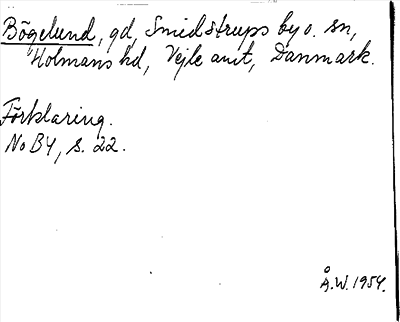 Bögelund, gd, Smidstrups by o. sn,
Holmans hd, Vejle amt, Danmark.
Förklaring.
NoBY, s. 22.
Å.W. 1954.